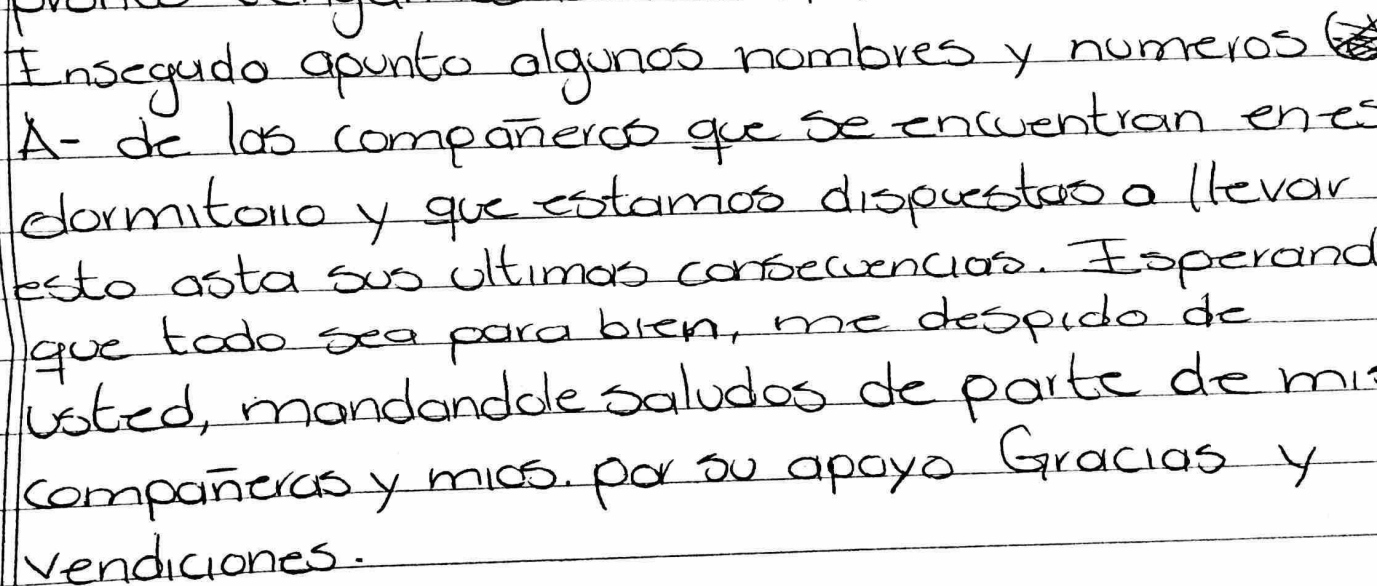 Ensegudo apunto algunos nombres y numeros
A- de las compañeras que se encuentran en es
dormitorio y que estamos dispuestas a llevar
esto asta sus ultimas consecuencias. Esperand
que todo sea para bien, me despido de
usted, mandandole saludos de parte de mis
compañeras y mios. por su apoyo Gracias y
vendiciones.